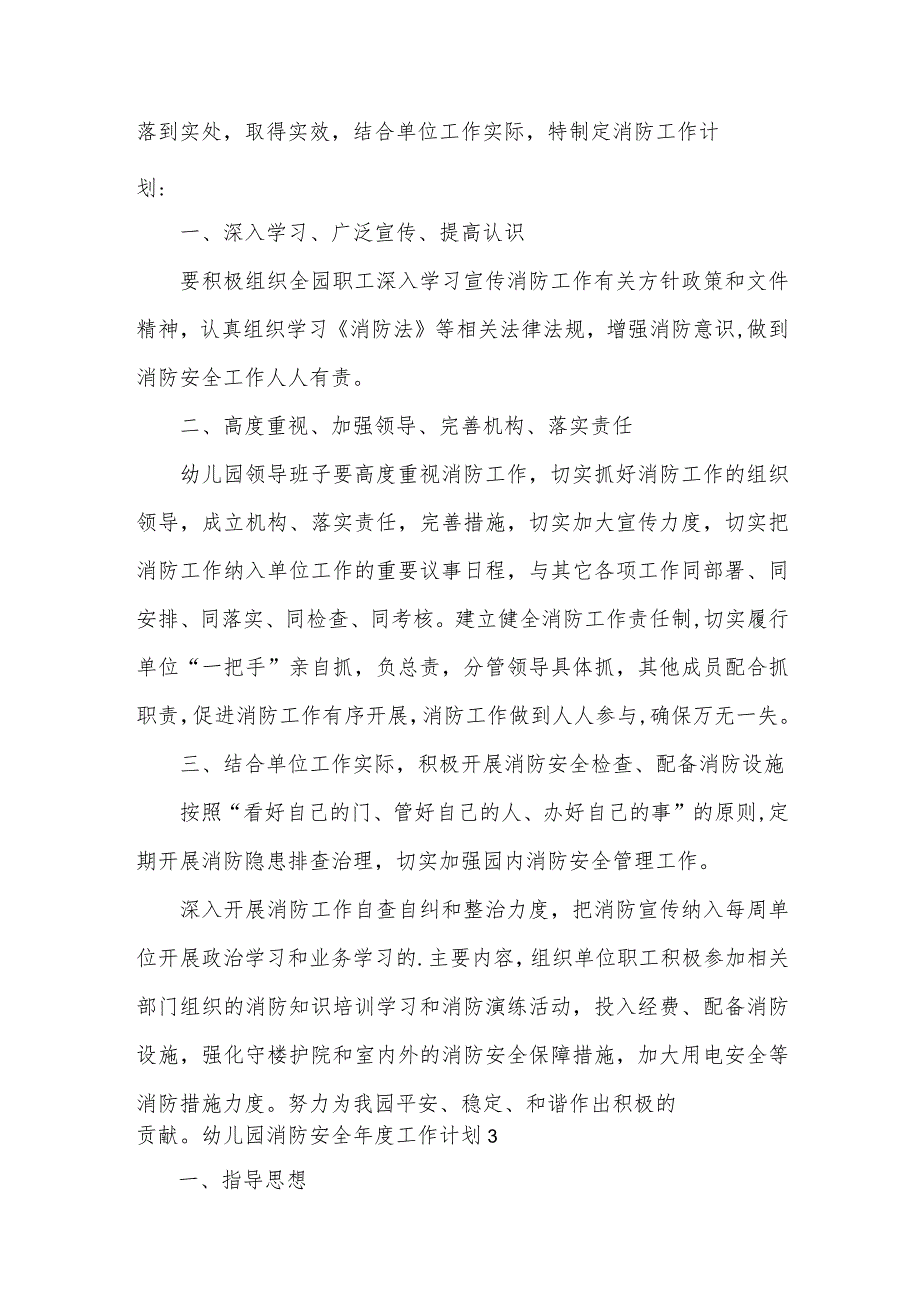 落到实处，取得实效，结合单位工作实际，特制定消防工作计
划：
一、深入学习、广泛宣传、提高认识
要积极组织全园职工深入学习宣传消防工作有关方针政策和文件
精神，认真组织学习《消防法》等相关法律法规，增强消防意识,做到
消防安全工作人人有责。
二、高度重视、加强领导、完善机构、落实责任
幼儿园领导班子要高度重视消防工作，切实抓好消防工作的组织
领导，成立机构、落实责任，完善措施，切实加大宣传力度，切实把
消防工作纳入单位工作的重要议事日程，与其它各项工作同部署、同
安排、同落实、同检查、同考核。建立健全消防工作责任制,切实履行
单位“一把手”亲自抓，负总责，分管领导具体抓，其他成员配合抓
职责,促进消防工作有序开展,消防工作做到人人参与,确保万无一失。
三、结合单位工作实际，积极开展消防安全检查、配备消防设施
按照“看好自己的门、管好自己的人、办好自己的事”的原则,定
期开展消防隐患排查治理，切实加强园内消防安全管理工作。
深入开展消防工作自查自纠和整治力度，把消防宣传纳入每周单
位开展政治学习和业务学习的.主要内容，组织单位职工积极参加相关
部门组织的消防知识培训学习和消防演练活动，投入经费、配备消防
设施，强化守楼护院和室内外的消防安全保障措施，加大用电安全等
消防措施力度。努力为我园平安、稳定、和谐作出积极的
贡献。幼儿园消防安全年度工作计划3
一、指导思想